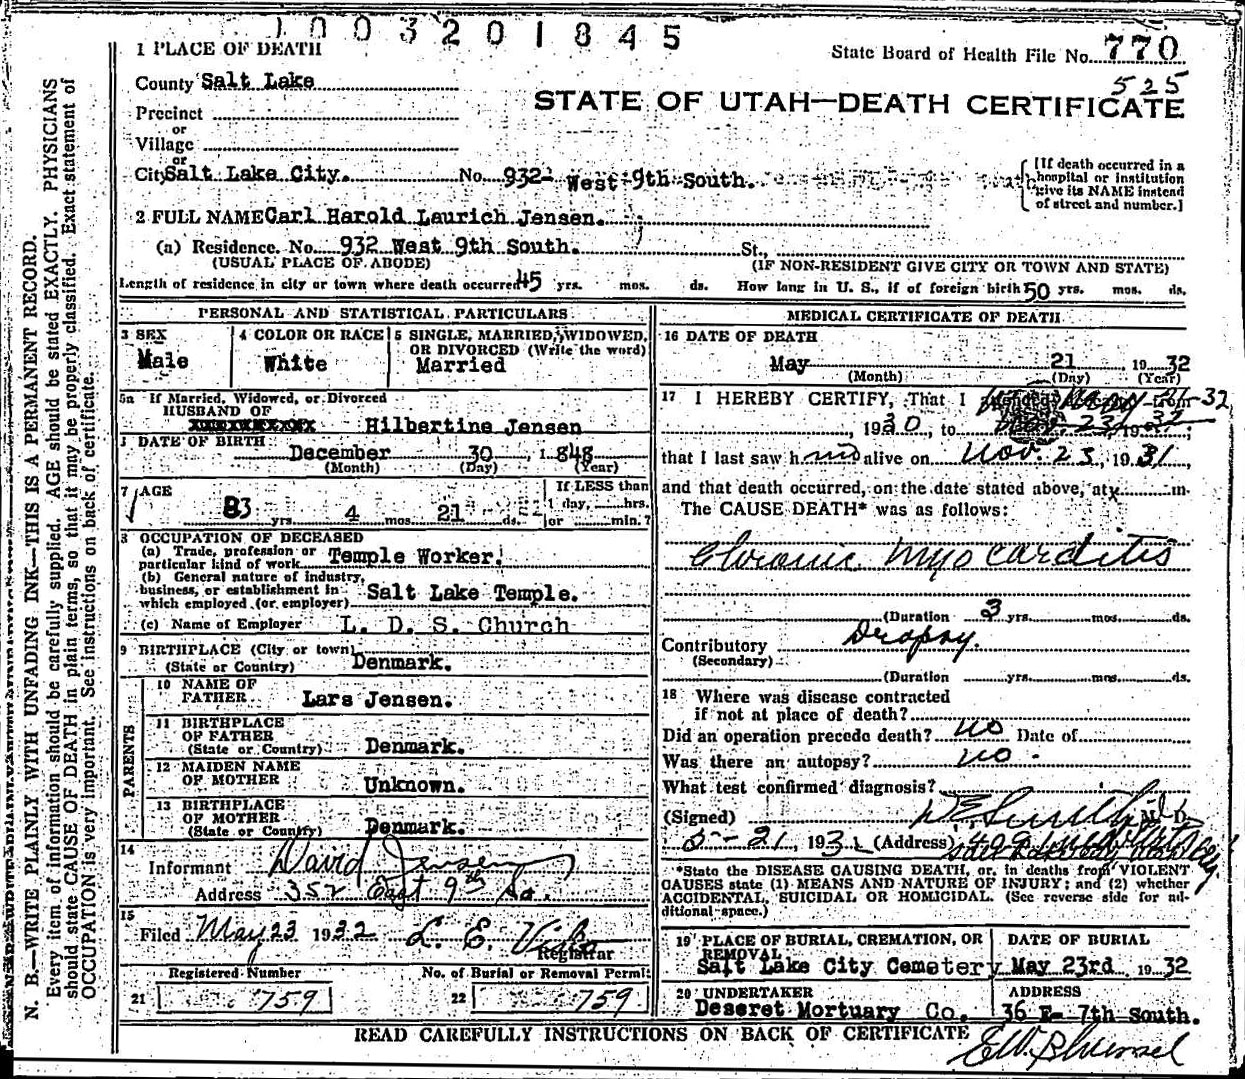 1003201845
1 PLACE OF DEATH
State Board of Health File No. 770
525
County Salt Lake
STATE OF UTAH—DEATH CERTIFICATE
Precinct
or
Village
or
City Salt Lake City. No. 932- West 9th South.
[If death occurred in a
hospital or institution
give its NAME instead
of street and number.]
2 FULL NAME Carl Harold Laurich Jensen.
(a) Residence. No. 932 West 9th South. St.,
(USUAL PLACE OF ABODE) (IF NON-RESIDENT GIVE CITY OR TOWN AND STATE)
Length of residence in city or town where death occurred 45 yrs. mos. ds. How long in U. S., if of foreign birth 50 yrs. mos. ds.
PERSONAL AND STATISTICAL PARTICULARS
3 SEX
Male
4 COLOR OR RACE
White
5 SINGLE, MARRIED, WIDOWED,
OR DIVORCED (Write the word)
Married
5a If Married, Widowed, or Divorced
HUSBAND OF
Hilbertine Jensen
DATE OF BIRTH
December 30, 1848
(Month) (Day) (Year)
7 AGE
83 yrs. 4 mos. 21 ds.
If LESS than
1 day, hrs.
or min.?
8 OCCUPATION OF DECEASED
(a) Trade, profession or
particular kind of work Temple Worker.
(b) General nature of industry,
business, or establishment in
which employed (or employer) Salt Lake Temple.
(c) Name of Employer L. D. S. Church
9 BIRTHPLACE (City or town)
(State or Country) Denmark.
PARENTS
10 NAME OF
FATHER Lars Jensen.
11 BIRTHPLACE
OF FATHER
(State or Country) Denmark.
12 MAIDEN NAME
OF MOTHER Unknown.
13 BIRTHPLACE
OF MOTHER
(State or Country) Denmark.
14
Informant David Jensen
Address 352 East 9th So.
15
Filed May 23 1932 L. E.
Registrar
Registered Number
21 759
No. of Burial or Removal Permit
22 759
MEDICAL CERTIFICATE OF DEATH
16 DATE OF DEATH
May 21, 1932
(Month) (Day) (Year)
17 I HEREBY CERTIFY, That I
, 1930, to
that I last saw h alive on Nov. 23, 1931,
and that death occurred, on the date stated above, at m.
The CAUSE DEATH* was as follows:
Chronic Myocarditis
(Duration 3 yrs. mos. ds.
Contributory Dropsy.
(Secondary)
(Duration yrs. mos. ds.
18 Where was disease contracted
if not at place of death?
Did an operation precede death? no Date of
Was there an autopsy? no.
What test confirmed diagnosis?
(Signed) M.D.
5-21, 1932 (Address)
*State the DISEASE CAUSING DEATH, or, in deaths from VIOLENT
CAUSES state (1) MEANS AND NATURE OF INJURY; and (2) whether
ACCIDENTAL, SUICIDAL OR HOMICIDAL. (See reverse side for ad-
ditional space.)
19 PLACE OF BURIAL, CREMATION, OR
REMOVAL
Salt Lake City Cemetery
DATE OF BURIAL
May 23rd 1932
20 UNDERTAKER
Deseret Mortuary Co.
ADDRESS
36 E- 7th South.
READ CAREFULLY INSTRUCTIONS ON BACK OF CERTIFICATE
N. B.—WRITE PLAINLY WITH UNFADING INK—THIS IS A PERMANENT RECORD.
Every item of information should be carefully supplied. AGE should be stated EXACTLY. PHYSICIANS
should state CAUSE OF DEATH in plain terms, so that it may be properly classified. Exact statement of
OCCUPATION is very important. See instructions on back of certificate.